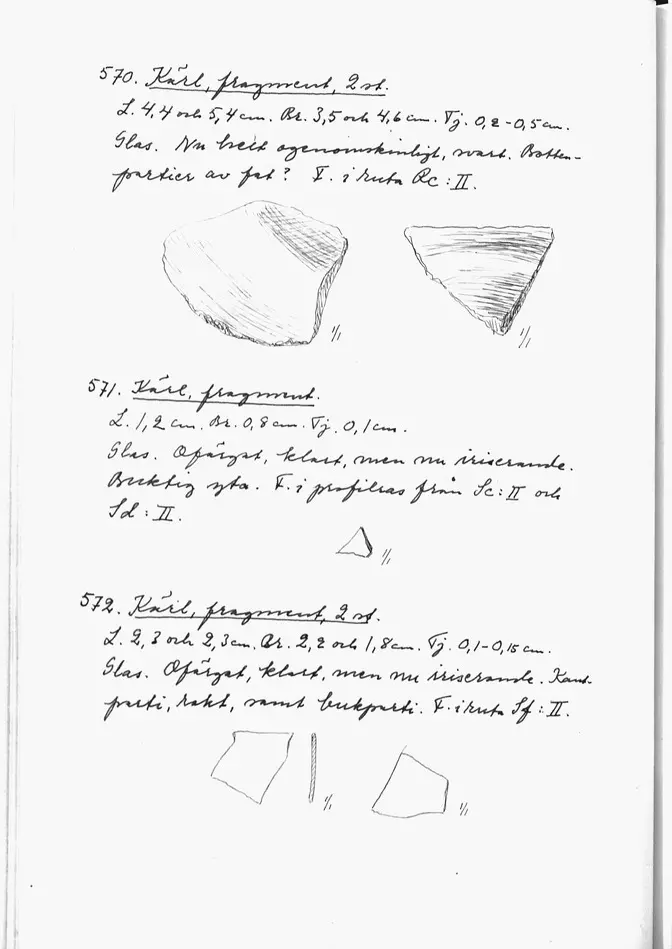 570. Kärl, fragment, 2 st.
L. 4,4 och 5,4 cm. Br. 3,5 och 4,6 cm. Tj. 0,2-0,5 cm.
Glas. Nu helt ogenomskinligt, svart. Botten-
partier av fat? F. i ruta Rc:II.
1/1
1/1
571. Kärl, fragment.
L. 1,2 cm. Br. 0,8 cm. Tj. 0,1 cm.
Glas. Ofärgat, klart, men nu iriserande.
Buktig yta. F. i profilras från Sc:II och
Sd:II.
1/1
572. Kärl, fragment, 2 st.
L. 2,3 och 2,3 cm. Br. 2,2 och 1,8 cm. Tj. 0,1-0,15 cm.
Glas. Ofärgat, klart, men nu iriserande. Kant-
parti, rakt, samt bukparti. F. i ruta Sf:II.
1/1
1/1